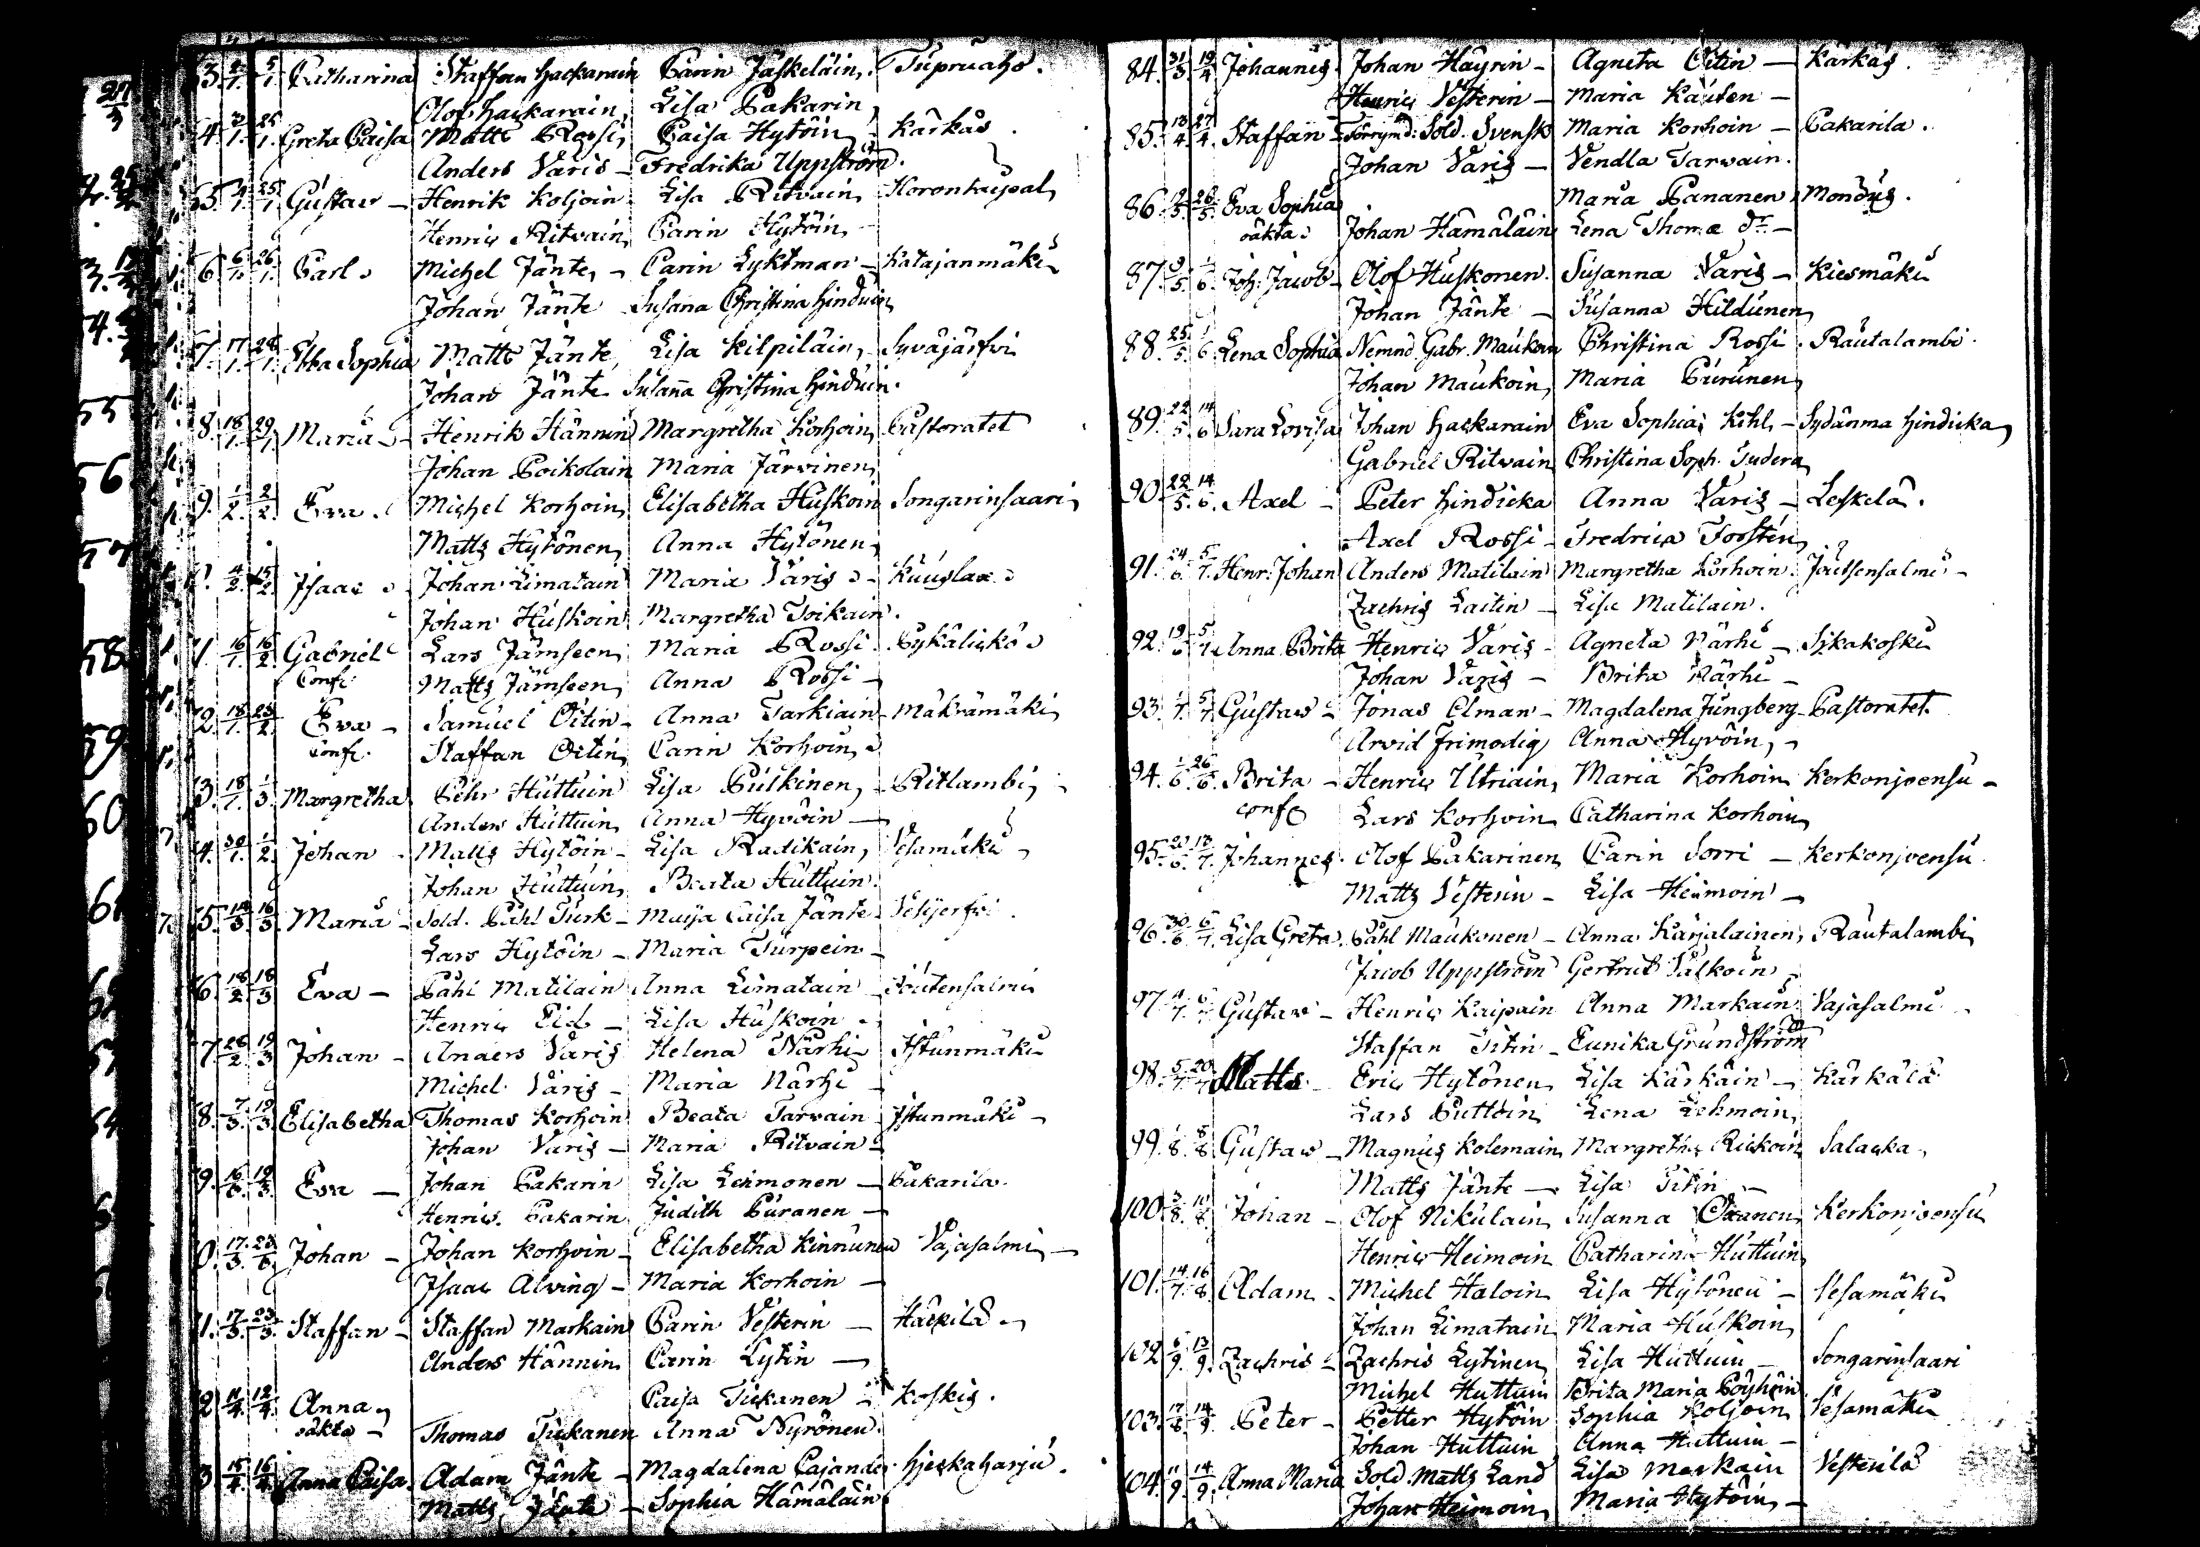 3. 5/1. Catharina Staffan Hackarain Carin Jäskeläin, Tupruaho.
Olof Hackarain, Lisa Pakarin,
4. 25/1. Greta Caisa Matts Rossi, Caisa Hytöin, Kärkäs.
Anders Varis – Fredrika Uppström.
5. 25/1 Gustav – Henrik Koljoin Lisa Ritvain, Korontaipal,
Henric Ritvain, Carin Hytöin,
6. 6/1. 26/1. Carl. Michel Jänte, – Carin Lyktman – Katajanmäki
Johan Jänte Susana Christina Hinduin
7. 17/1. 28/1. Ebba Sophia Matts Jänte, Lisa Kilpiläin, Syväjärfvi
Johan Jänte Susana Christina Hinduin.
8. 18/1. 29/1 Maria – Henrik Hännin Margretha Korhoin, Pastoratet
Johan Poikolain Maria Järvinen,
9. 1/2. 2/2. Eva. Michel Korhoin, Elisabetha Huskoin Songarinsaari,
Matts Hytönen, Anna Hytönen,
4/2. 15/2. Isaac Johan Limatain Maria Varis – Kuuslax.
Johan Huskoin Margretha Toikain.
1. 16/1. 16/2. Gabriel Lars Jämseen, Maria Rossi. Pykälickö
Conf: Matts Jämseen, Anna Rossi –
2. 18/1. 23/2. Eva – Samuel Oitin – Anna Tarkiain – Mäkrämäki,
Conf. Staffan Oitin, Carin Korhoin,
3. 18/1. 1/3. Margretha Pehr Huttuin Lisa Pulkinen, – Ritlambi,
Anders Huttuin, Anna Hyvöin –
4. 30/1. 1/2. Johan. Matts Hytöin – Lisa Radikain, Vesamäki –
Johan Huttuin, Beata Huttuin.
5. 16/3. Maria – Sold. Påhl Turk – Maija Caisa Jänte. Vesijerfvi.
Lars Hytöin – Maria Turpein –
6. 18/2 18/3 Eva – Påhl Matilain Anna Limatain – Joutensalmi
Henric Eid – Lisa Huskoin
7. 26/2. 19/3 Johan – Anders Varis Helena Närhi – Istunmäki
Michel Varis – Maria Närhi –
8. 7/3. 19/3 Elisabetha Thomas Korhoin Beata Tarvain Istunmäki –
Johan Varis – Maria Ritvain –
9. 16/3. 19/3. Eva – Johan Pakarin Lisa Lehmonen – Pakarila.
Henric. Pakarin Judith Puranen –
0. 17/3. 23/3. Johan – Johan Korhoin – Elisabetha Kinnunen Vajasalmi, –
Isaac Alving – Maria Korhoin –
1. 17/3. 23/3. Staffan – Staffan Markain Carin Vesterin – Häckilä
Anders Hännin, Carin Lytin –
2 11/4. 12/4. Anna, Caisa Tickanen – Koskis.
oäkta – Thomas Tickanen Anna Byrönen.
3. 15/4. 16/4. Anna Caisa. Adam Jänte – Magdalena Cajander Hjeskaharju.
Matts Jänte – Sophia Hämäläin
84. 31/3 19/4 Johannes. Johan Häyrin – Agneta Oitin – Kärkäs.
Henric Vesterin – Maria Kauten –
85. 18/4. 27/4. Staffan – Sold. Svensk Maria Korhoin – Pakarila.
Johan Varis – Vendla Tarvain.
86. 26/5. Eva Sophia Maria Pananen, Mondus.
oäkta. Johan Hämäläin Lena Thomæ dr. –
87. 1/6. Joh: Jacob – Olof Huskonen. Susanna Varis – Kiesmäki
Johan Jänte – Susanna Hildunen,
88. 25/5. 1/6. Lena Sophia Nemnd. Gabr. Maukoin Christina Rossi. Rautalambi.
Johan Maukoin, Maria Purunen,
89. 22/5. 14/6 Sara Lovisa Johan Hackarain Eva Sophia Kihl, – Sydänma Hindicka,
Gabriel Ritvain Christina Soph. Tudera
90. 22/5. 14/6. Axel – Peter Hindicka Anna Varis – Leskelä.
Axel Rossi – Fredrica Forstén,
91. 24/6. 5/7. Henr: Johan Anders Matilain Margretha Korhoin. Joutsensalmi –
Zachris Laitin – Lisa Matilain.
92. 5/7. Anna Brita Henric Varis – Agneta Närhi – Sikakoski
Johan Varis – Brita Närhi –
93. 1/7. 5/7. Gustav – Jonas Elman – Magdalena Jungberg – Pastoratet.
Arvid Frimodig Anna Hyvöin, –
94. 1/6. 26/6. Brita – Henric Utriain, Maria Korhoin, Kerkonjoensu –
conf Lars Korhoin, Catharina Korhoin,
95. 13/7. Johannes. Olof Pakarinen, Carin Sorri – Kerkonjoensu.
Matts Vesterin – Lisa Heimoin –
96. 30/6 6/7. Lisa Greta. Påhl Maukonen – Anna Karjalainen, Rautalambi,
Jacob Uppström Gertrud Palkoin
97. Gustav – Henric Kaipain Anna Markain, Vajasalmi
Staffan Titin – Eunika Grundström
98. 5/7. 20/7 Matts. Eric Hytönen, Lisa Kärkäin – Kärkälä
Lars Puttoin Lena Lehmoin,
99. 1/8. 8/8. Gustav – Magnus Kolemain, Margretha Rickoin, Salacka.
Matts Jänte – Lisa Titin –
100. 3/8. 10/8 Johan – Olof Nikulain, Susanna Oranen, Kerkonjoensu
Henric Heimoin Catharina Huttuin,
101. 14/7. 16/8. Adam – Michel Haloin, Lisa Hytönen – Vesamäki
Johan Limatain Maria Huskoin,
102. 6/9. 13/9. Zachris – Zachris Lytinen, Lisa Huttuin – Songarinsaari
Michel Huttuin Brita Maria Pöyhöin
103. 17/8. 14/9. Peter – Petter Hytöin Sophia Koljoin, Vesamäki
Johan Huttuin Anna Huttuin –
104. 11/9. 14/9. Anna Maria Sold. Matts Land Lisa Markain Vesterilä
Johan Heimoin, Maria Hytöin, –